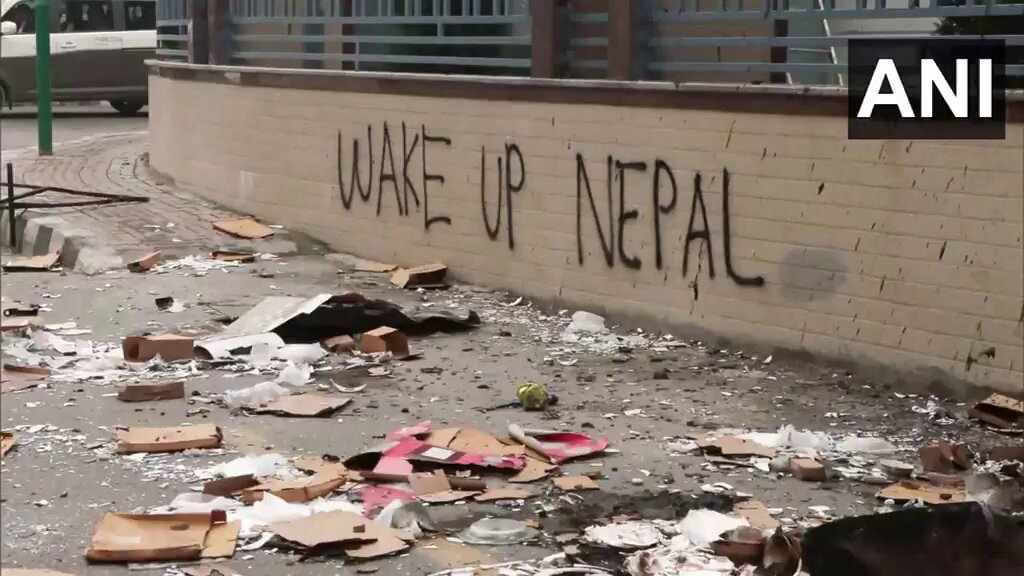 ANI
WAKE UP NEPAL